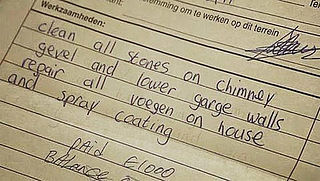 stemming om te werken op dit terrein
Werkzaamheden:
clean all stones on chimney
gevel and lower garge walls
repair all voegen on house
and spray coating
PAID £1000
BALANCE